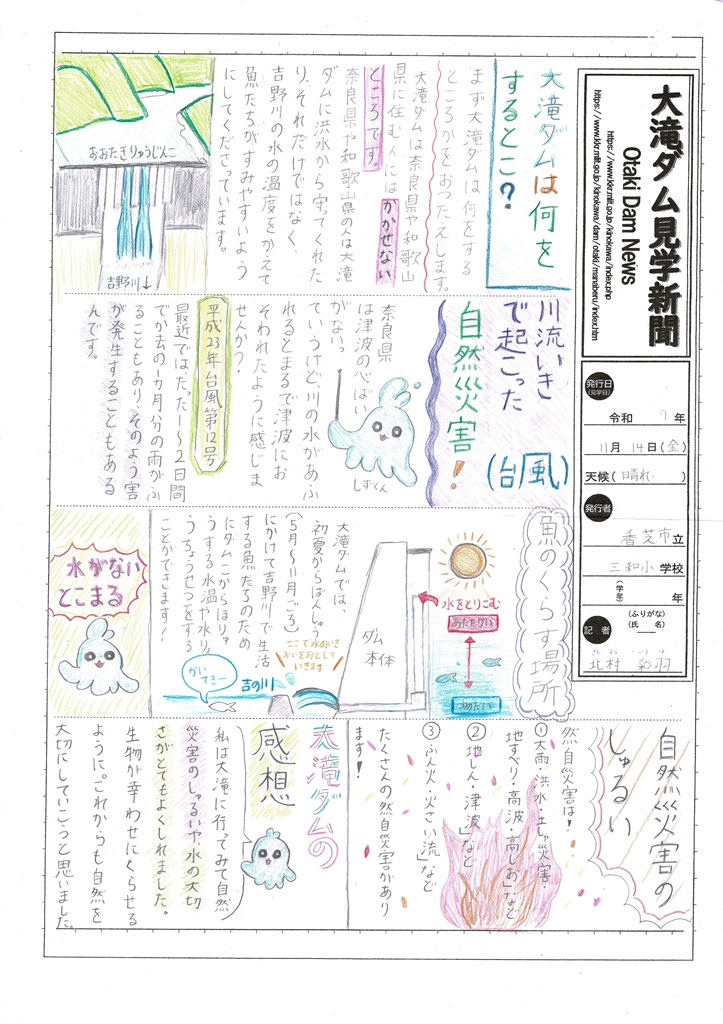 大滝ダム見学新聞
Otaki Dam News
https://www.kkr.mlit.go.jp/kinokawa/index.php
https://www.kkr.mlit.go.jp/kinokawa/dam/otaki/manaberu/index.htm
発行日
(見学日)
令和 7 年
11月 14日(金)
天候(晴れ )
発行者
香芝市 立
三和小 学校
(学年) 年
記者
(ふりがな)
(氏 名)
北村 彩羽
大滝ダムは何を
するとこ?
まず大滝ダムは何をする
ところかをおつたえします。
大滝ダムは奈良県や和歌山
県に住む人にはかかせない
ところです。
奈良県や和歌山県の人は大滝
ダムに洪水から守ってくれた
り、それだけではなく、
吉野川の水の温度をかえて
魚たちがすみやすいよう
にしてくださっています。
おおたきりゅうじんこ
吉野川↓
川流いき
で起こった
自然災害!
(台風)
奈良県
は津波の心ぱい
がないっ
ていうけど、川の水があふ
れるとまるで津波にお
そわれたように感じま
せんか?
しずくん
平成23年台風第12号
最近ではたった1~2日間
でか去の1カ月分の雨がふ
ることもあり、そのよう害
が発生することもある
んです。
魚のくらす場所
水をとりこむ
あたたかい
つめたい
ダム
本体
ここで水のいき
おいをおとして
いきます
吉の川
かいてきー
大滝ダムでは、
初夏からばんしゅう
(5月~11月ごろ)
にかけて吉野川で生活
する魚たちのため
にダムこからほうりゅ
うする水温や水りょ
うちょうせつをする
ことができます!
水がない
とこまる
自然災害の
しゅるい
然自災害は!
①大雨・洪水・土しゃ災害・
地すべり・高波・高しお」など
②地しん・津波」など
③ふん火・火さい流」など
たくさんの然自災害があり
ます!
大滝ダムの
感想
私は大滝に行ってみて自然
災害のしゅるいや、水の大切
さがとてもよくしれました。
生物が幸わせにくらせる
ように。これからも自然を
大切にしていこうと思いました。